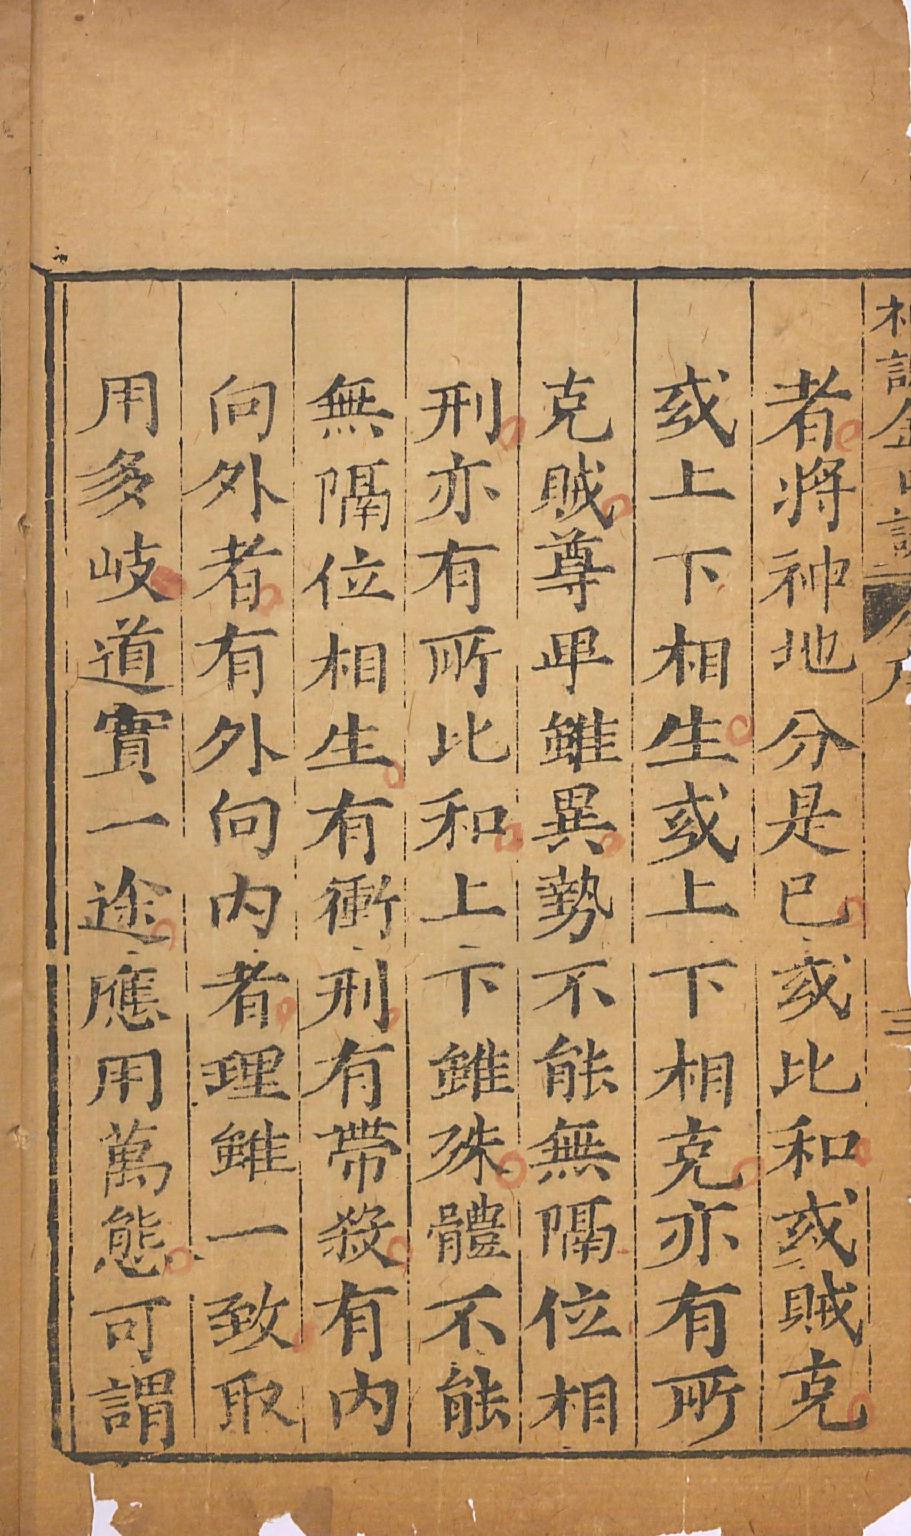 者將神地分是已或比和或賊克
或上下相生或上下相克亦有所
克賊尊卑雖異勢不能無隔位相
刑亦有所比和上下雖殊體不能
無隔位相生有衝刑有帶殺有内
向外者有外向内者理雖一致取
用多岐道實一途應用萬態可謂